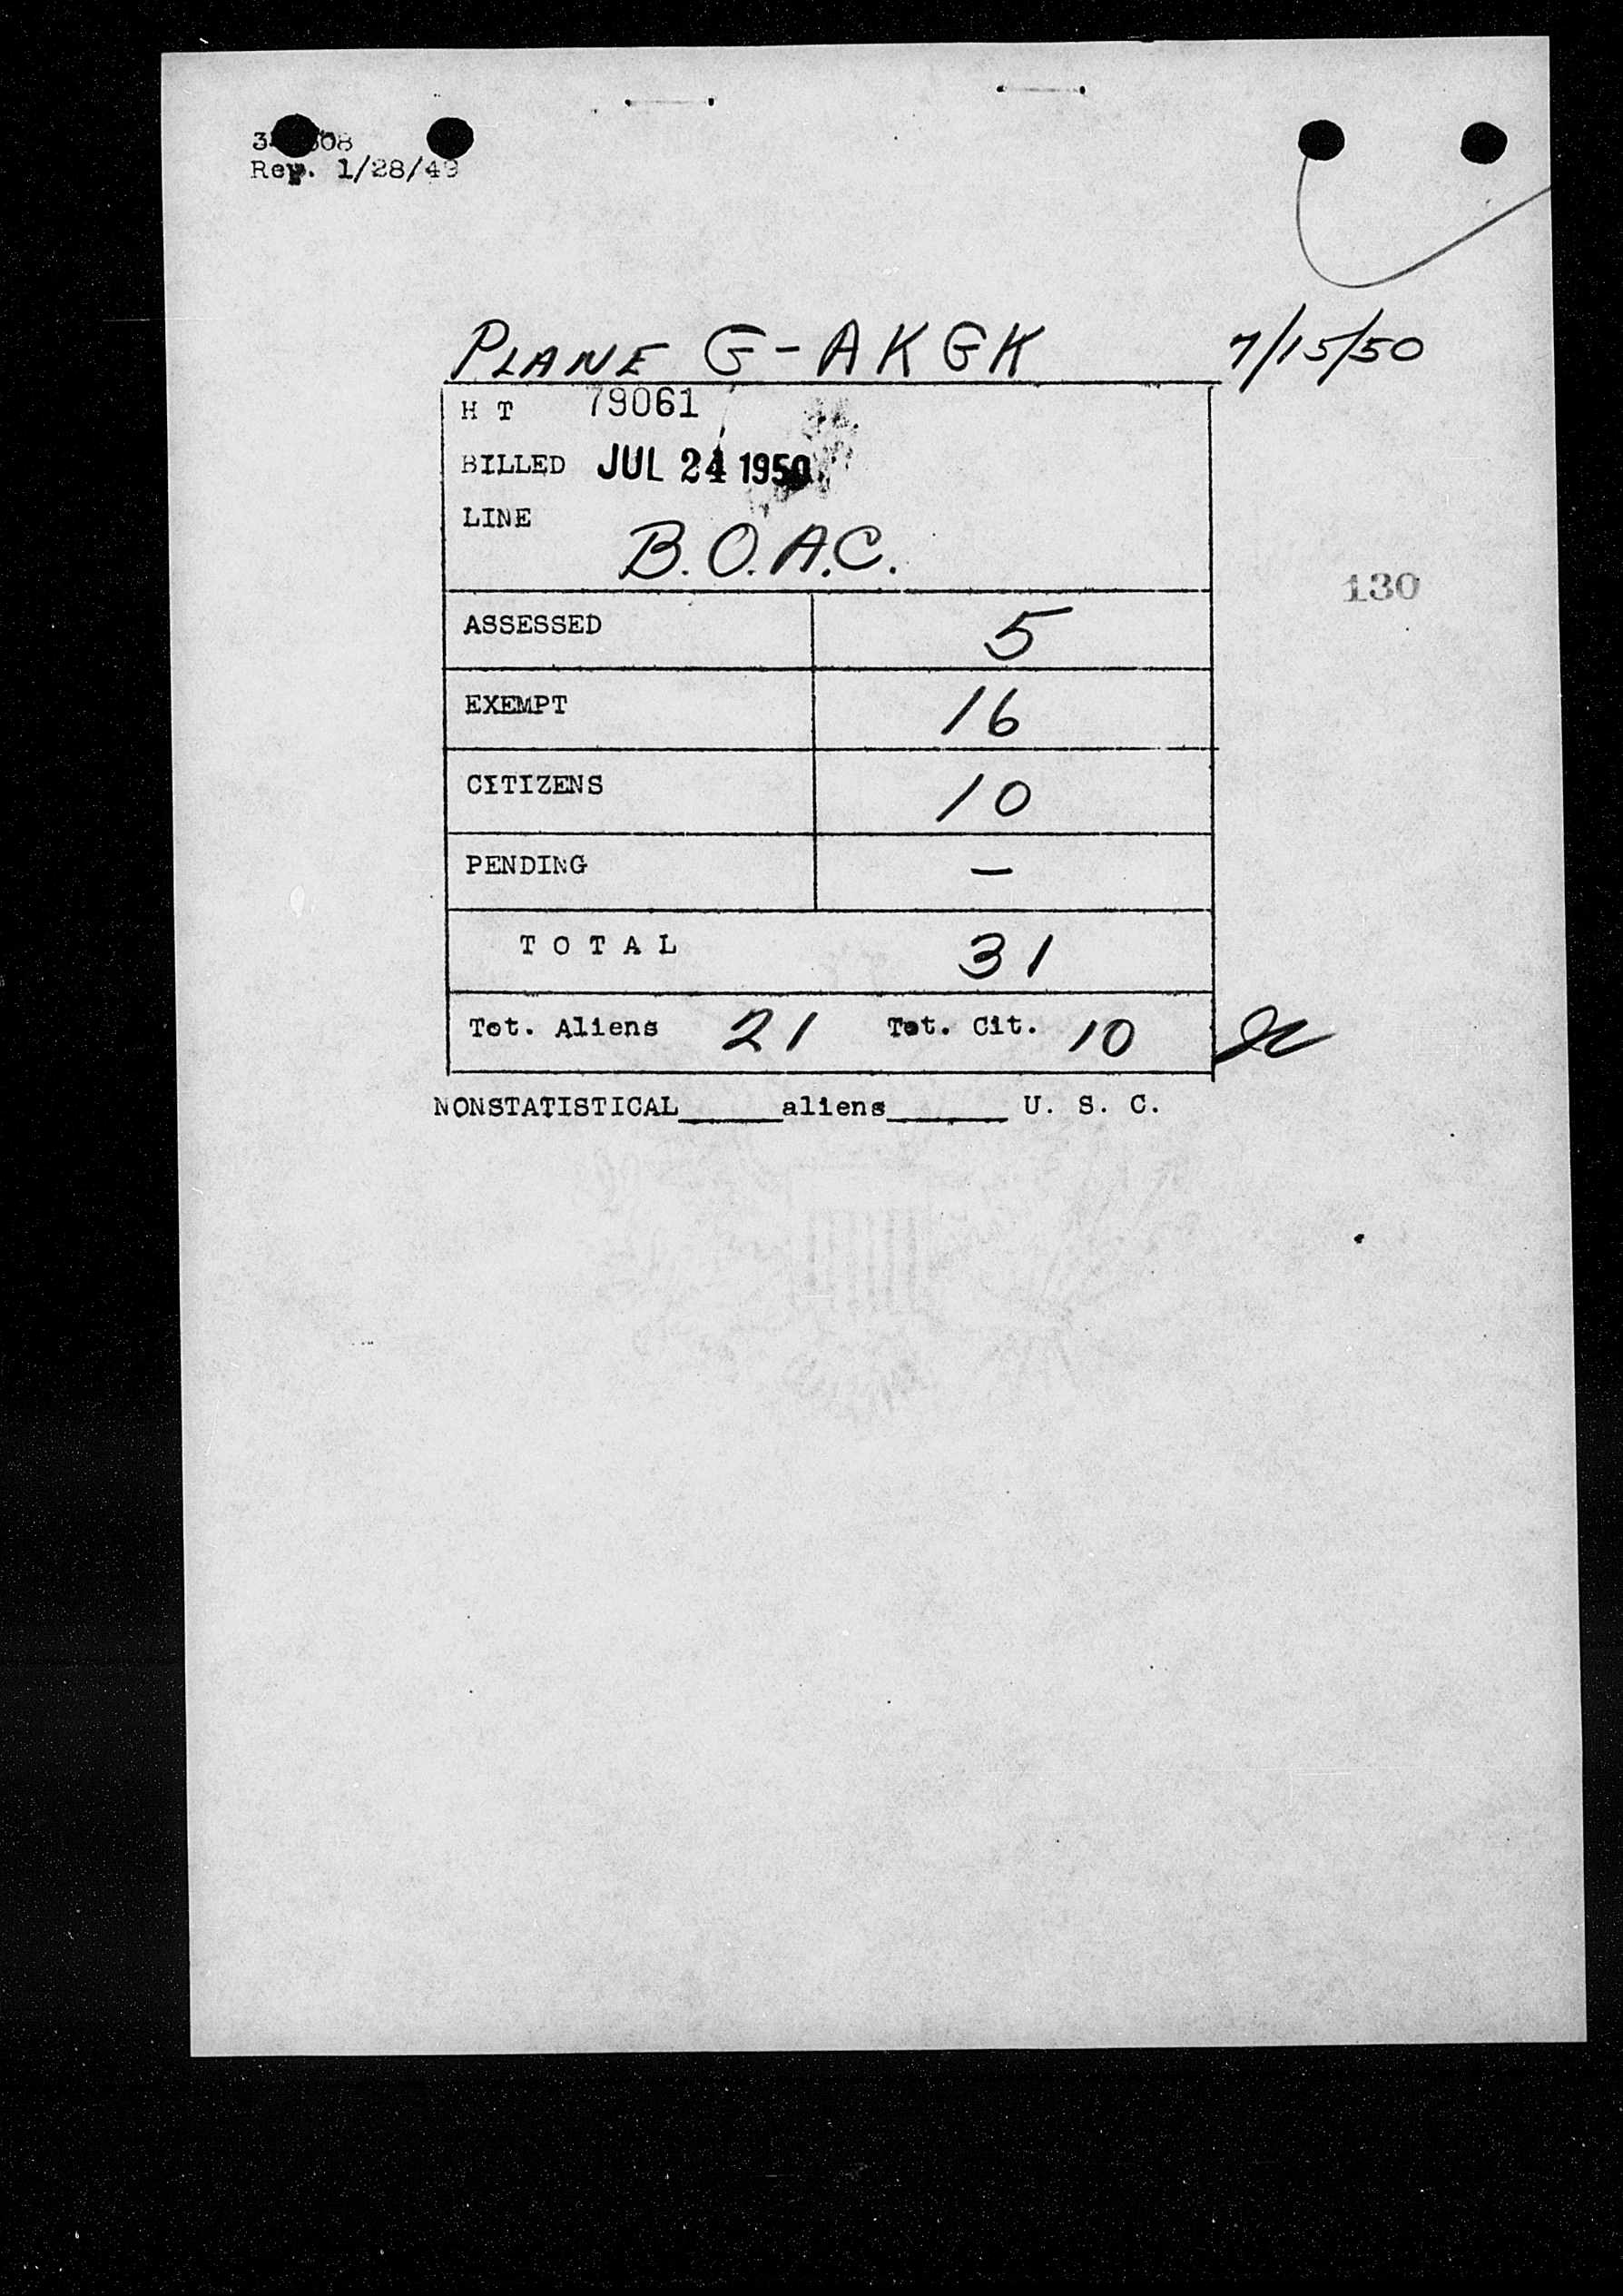 Rev. 1/28/49
PLANE G-AKGK 7/15/50
H T 79061
BILLED JUL 24 1950
LINE
B.O.A.C.
130
ASSESSED 5
EXEMPT 16
CITIZENS 10
PENDING —
TOTAL 31
Tot. Aliens 21 Tot. Cit. 10
NONSTATISTICAL______aliens_______ U. S. C.